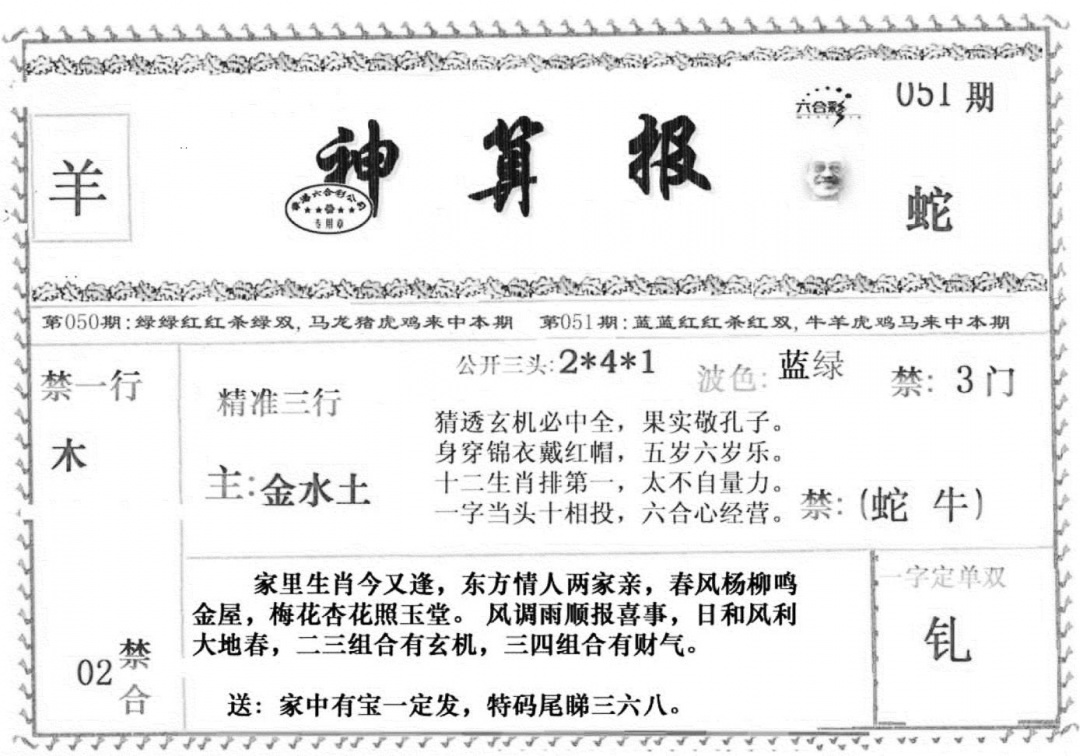 051 期
六合彩
羊
神算报
香港六合彩公司
专用章
蛇
第050期:绿绿红红杀绿双,马龙猪虎鸡来中本期 第051期:蓝蓝红红杀红双,牛羊虎鸡马来中本期
禁一行
木
精准三行
主:金水土
公开三头:2*4*1
波色:蓝绿
禁:3门
猜透玄机必中全，果实敬孔子。
身穿锦衣戴红帽，五岁六岁乐。
十二生肖排第一，太不自量力。
一字当头十相投，六合心经营。
禁:(蛇 牛)
02禁合
家里生肖今又逢，东方情人两家亲，春风杨柳鸣
金屋，梅花杏花照玉堂。风调雨顺报喜事，日和风利
大地春，二三组合有玄机，三四组合有财气。
送：家中有宝一定发，特码尾睇三六八。
一字定单双
钆